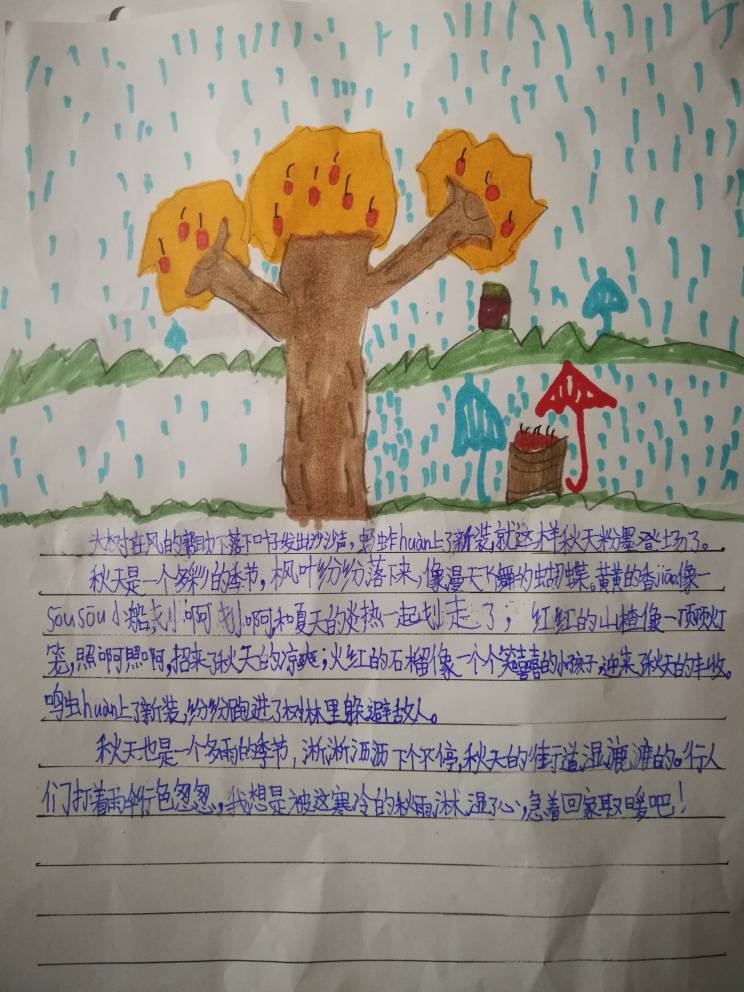 大树在风的帮助下落下叶子发出沙沙声，蚂蚱huàn上了新装，就这样秋天粉墨登场了。
秋天是一个多彩的季节，枫叶纷纷落下来，像漫天飞舞的蝴蝶。黄黄的香jiāo像一
sōu sōu小船，划啊划啊，和夏天的炎热一起划走了；红红的山楂像一顶顶灯
笼，照啊照啊，招来了秋天的凉爽；火红的石榴像一个个笑嘻嘻的小孩子，迎来了秋天的丰收。
鸣虫huàn上了新装，纷纷跑进了树林里躲避敌人。
秋天也是一个多雨的季节，淅淅沥沥下个不停，秋天的街道湿漉漉的。行人
们打着雨伞行色忽忽，我想是被这寒冷的秋雨淋湿了心，急着回家取暖吧！